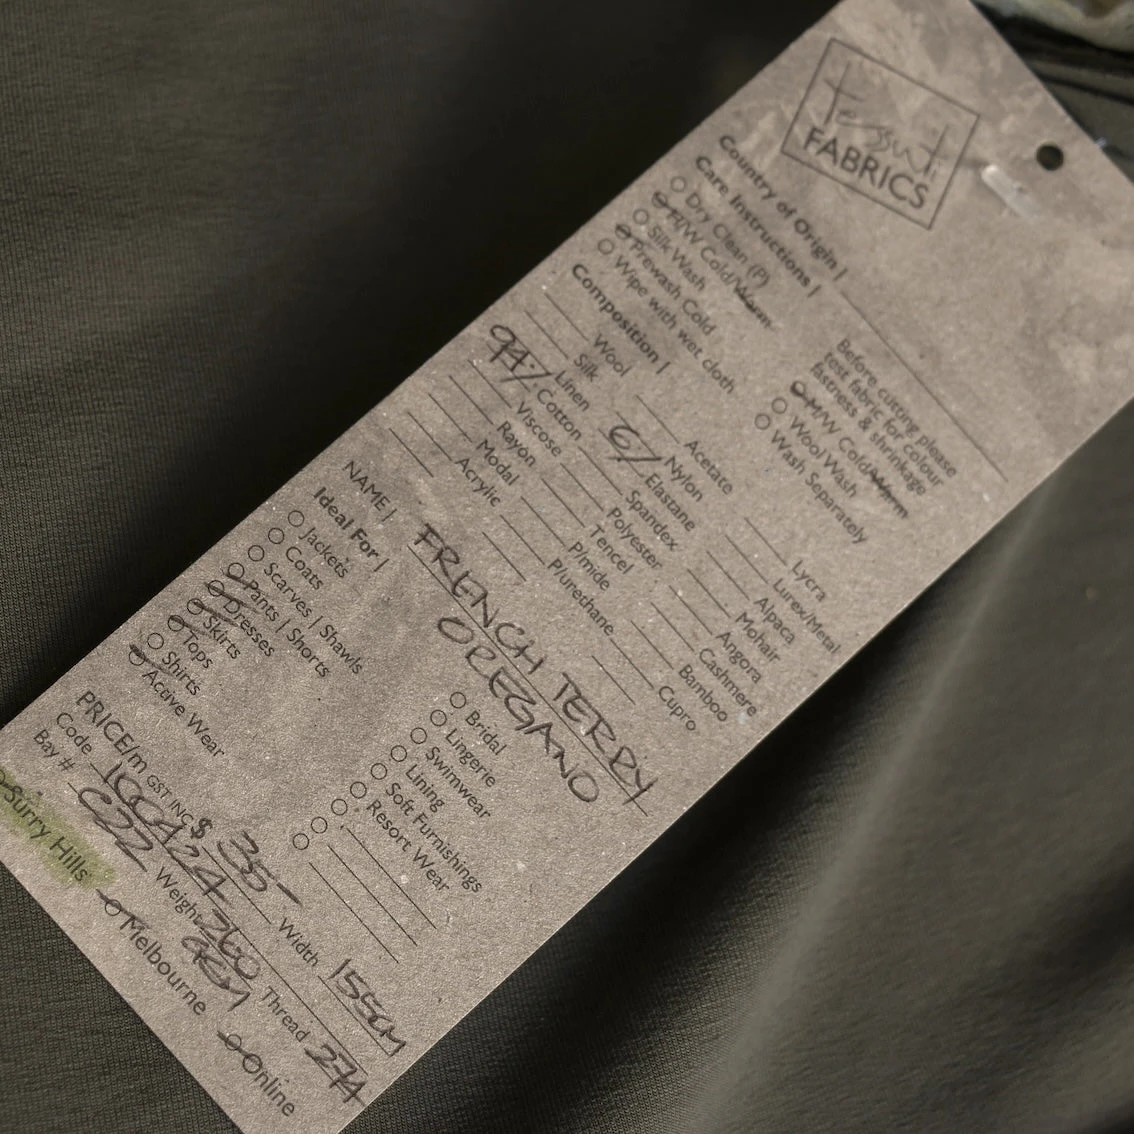 Tessuti
FABRICS
Country of Origin |
Care Instructions |
Dry Clean (P)
H/W Cold/Warm
Silk Wash
Prewash Cold
Wipe with wet cloth
Before cutting please
test fabric for colour
fastness & shrinkage
M/W Cold/Warm
Wool Wash
Wash Separately
Composition |
Wool
Silk
Linen
94% Cotton
Viscose
Rayon
Modal
Acrylic
Acetate
Nylon
6% Elastane
Spandex
Polyester
Tencel
P/mide
P/urethane
Lycra
Lurex/Metal
Alpaca
Mohair
Angora
Cashmere
Bamboo
Cupro
NAME | FRENCH TERRY
OREGANO
Ideal For |
Jackets
Coats
Scarves | Shawls
Pants | Shorts
Dresses
Skirts
Tops
Shirts
Active Wear
Bridal
Lingerie
Swimwear
Lining
Soft Furnishings
Resort Wear
PRICE/m GST INC $ 35- Width 155CM
Code 100424 Weight 260 GSM Thread 274
Bay # C22
Surry Hills Melbourne Online